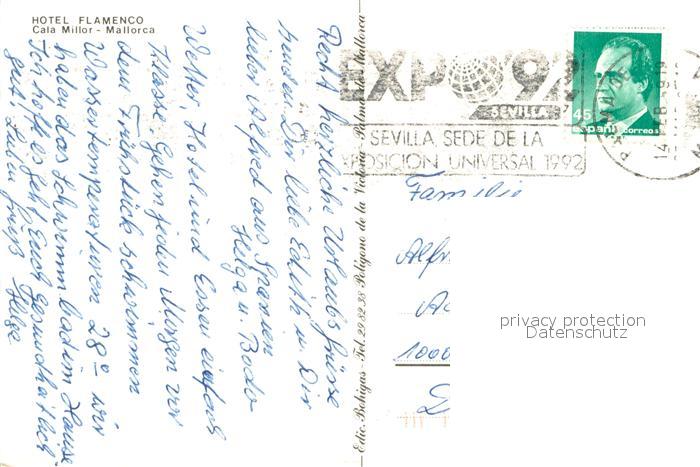 HOTEL FLAMENCO
Cala Millor - Mallorca
Recht herzliche Urlaubsgrüsse
senden Dir liebe Edith u. Dir
lieber Alfred aus Spanien
Helga u. Bodo
Wetter Hotel und Essen einfach
Klasse Gehen jeden Morgen vor
dem Frühstück schwimmen
Wassertemperaturen 28° wir
haben das Schwimmbad im Hause.
Ich hoffe es geht Euch gesundheitlich
gut! Lieben Gruß Helga
Edic. Bohigas - Tel. 29 82 38 Polígono de la Victoria - Palma de Mallorca
EXPO '92
SEVILLA
SEVILLA, SEDE DE LA
EXPOSICION UNIVERSAL 1992
45
España correos
Familie
Alf
1000
privacy protection
Datenschutz